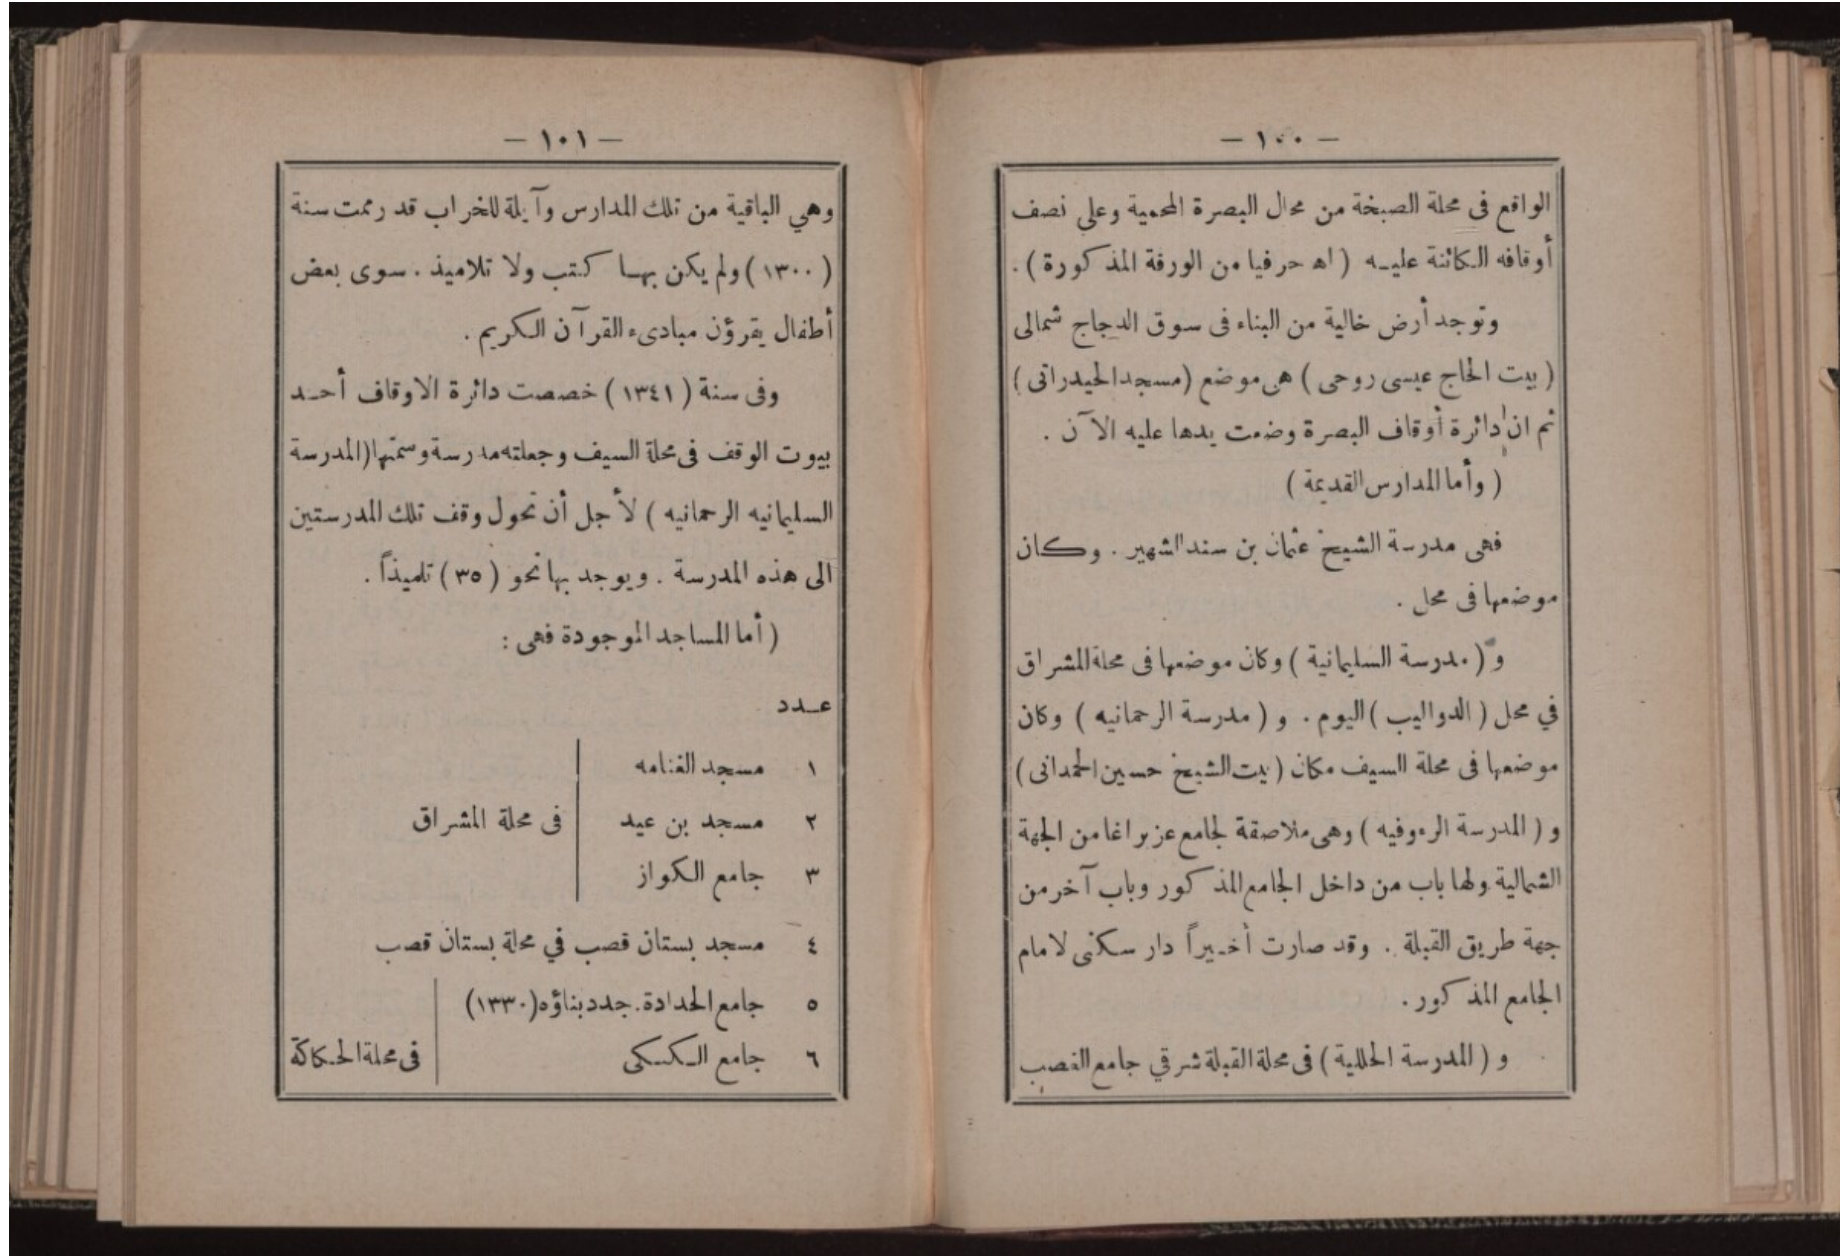 — ١٠٠ —
الواقع فى محلة الصبخة من محال البصرة المحمية وعلي نصف
أوقافه الكائنة عليه ( اھ حرفيا من الورقة المذكورة ) .
وتوجد أرض خالية من البناء فى سوق الدجاج شمالى
( بيت الحاج عيسى روحى ) هى موضع ( مسجد الحيدراتى )
ثم ان دائرة أوقاف البصرة وضعت يدها عليه الآن .
( وأما المدارس القديمة )
فهى مدرسة الشيخ عثمان بن سند الشهير . وكان
موضعها فى محل .
و ( مدرسة السليمانية ) وكان موضعها فى محلة المشراق
في محل ( الدواليب ) اليوم . و ( مدرسة الرحمانيه ) وكان
موضعها فى محلة السيف مكان ( بيت الشيخ حسين الحمدانى )
و ( المدرسة الرءوفيه ) وهى ملاصقة لجامع عزبر اغا من الجهة
الشمالية ولها باب من داخل الجامع المذكور وباب آخر من
جهة طريق القبلة . وقد صارت أخيراً دار سكنى لامام
الجامع المذكور .
و ( المدرسة الحللية ) فى محلة القبلة شرقي جامع القصب
— ١٠١ —
وهي الباقية من تلك المدارس وآيلة للخراب قد رممت سنة
( ١٣٠٠ ) ولم يكن بها كتب ولا تلاميذ . سوى بعض
أطفال يقرؤن مبادىء القرآن الكريم .
وفى سنة ( ١٣٤١ ) خصصت دائرة الاوقاف أحد
بيوت الوقف فى محلة السيف وجعلته مدرسة وسمتها ( المدرسة
السليمانيه الرحمانيه ) لأجل أن تحول وقف تلك المدرستين
الى هذه المدرسة . ويوجد بها نحو ( ٣٥ ) تلميذاً .
( أما المساجد الموجودة فهى :
عدد
١ مسجد الغنامه
٢ مسجد بن عيد فى محلة المشراق
٣ جامع الكواز
٤ مسجد بستان قصب في محلة بستان قصب
٥ جامع الحدادة . جدد بناؤه ( ١٣٣٠ )
٦ جامع الككى فى محلة الحكاكة